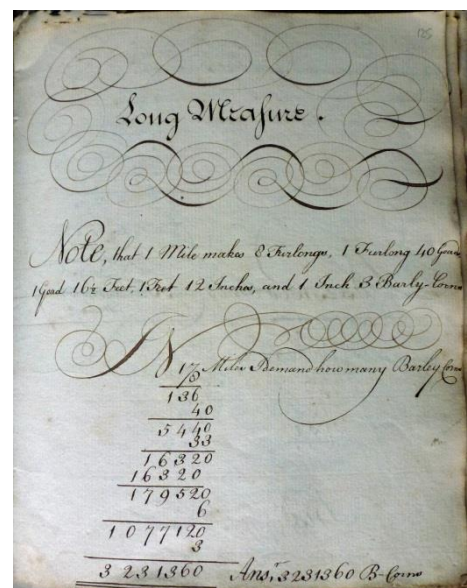 125
Long Measure.
Note, that 1 Mile makes 8 Furlongs, 1 Furlong 40 Goads
1 Goad 16½ Feet, 1 Foot 12 Inches, and 1 Inch 3 Barly-Corns
IN 17 Miles Demand how many Barley Corns
8
136
40
5440
33
16320
16320
179520
6
1077120
3
3231360 Ansr 3231360 B-Corns